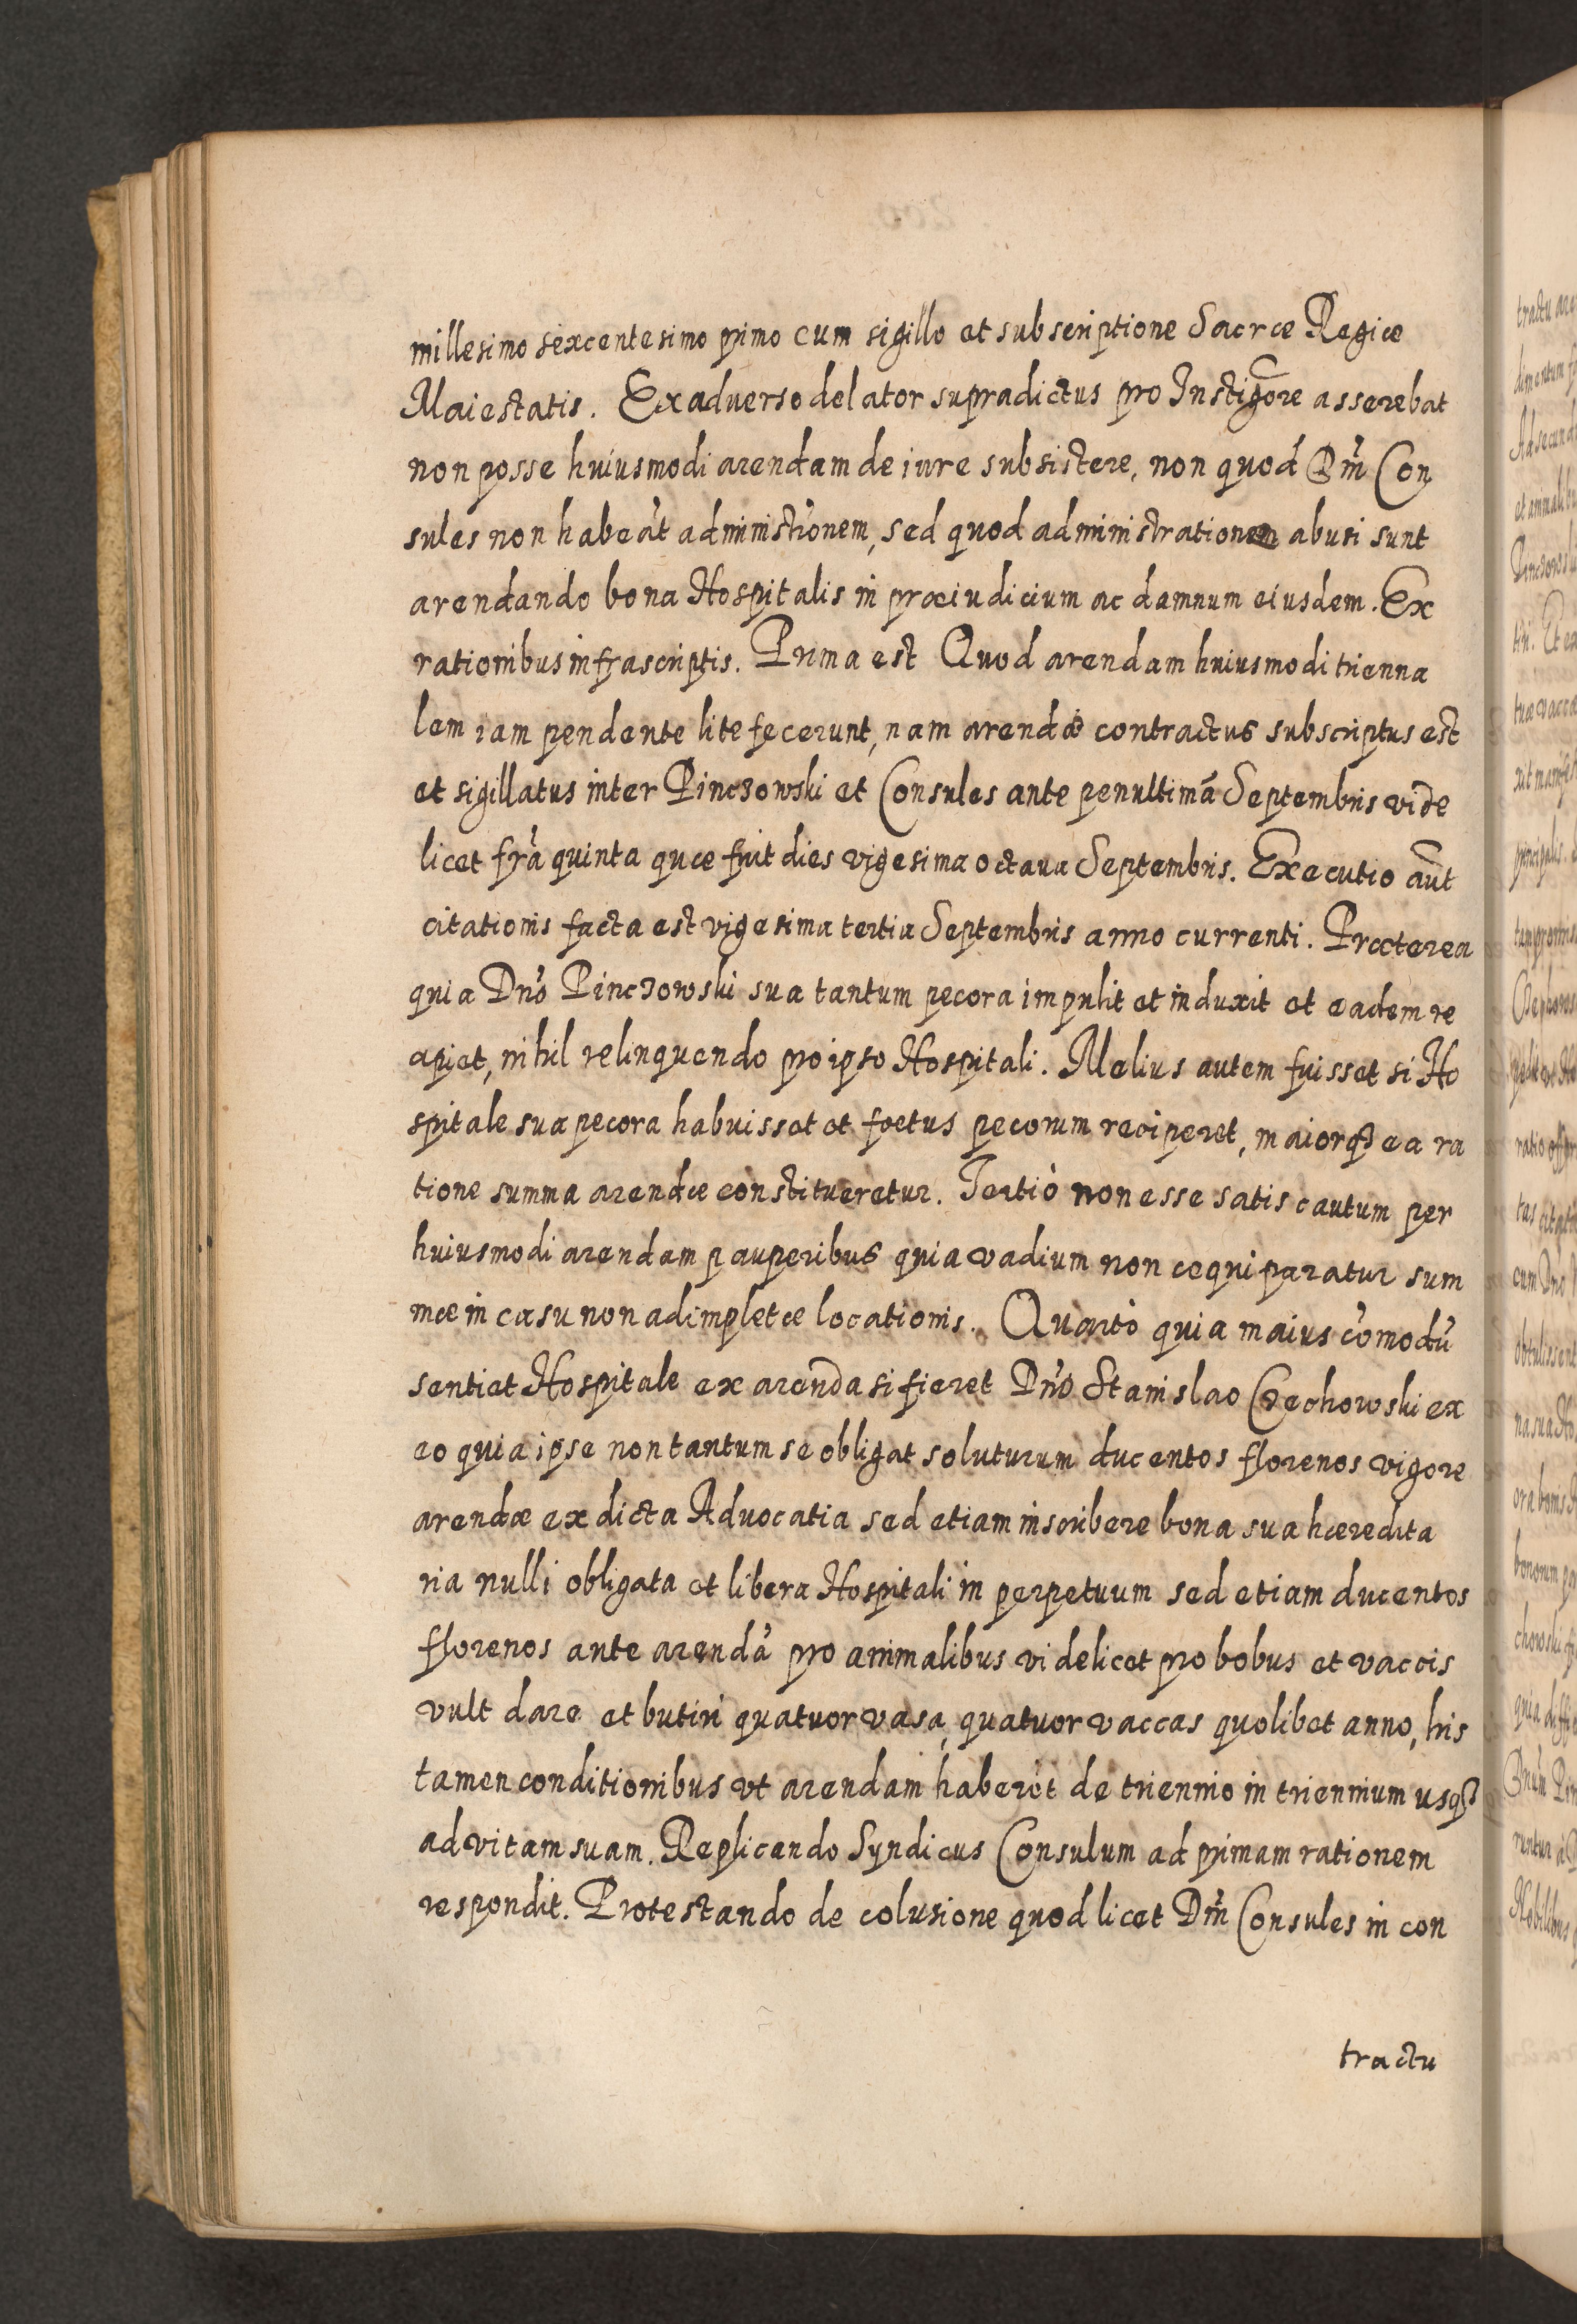 millesimo sexcentesimo primo cum sigillo et subscriptione Sacræ Regiæ
Maiestatis. Ex adverso delator supradictus pro Instigore asserebat
non posse huiusmodi arendam de iure subsistere, non quod Dni Con
sules non habeãt administrõnem, sed quod administrationem abusi sunt
arendando bona Hospitalis in præiudicium ac damnum eiusdem. Ex
rationibus infrascriptis. Prima est Quod arendam huiusmodi trienna
lem iam pendente lite fecerunt, nam arendæ contractus subscriptus est
et sigillatus inter Pinczowski et Consules ante penultimã Septembris vide
licet frã quinta quæ fuit dies vigesima octava Septembris. Executio aũt
citationis facta est vigesima tertia Septembris anno currenti. Præterea
quia Dnõ Pinczowski sua tantum pecora impulit et induxit et eadem re
apiet, nihil relinquendo pro ipso Hospitali. Melius autem fuisset si Ho
spitale sua pecora habuisset et foetus pecorum reciperet, maiorq3 ea ra
tione summa arendæ constitueretur. Tertiò non esse satis cautum per
huiusmodi arendam pauperibus quia vadium non æquiparatur sum
mæ in casu non adimpletæ locationis. Quartò quia maius cõmodũ
sentiet Hospitale ex arenda si fieret Dnõ Stanislao Czechowski ex
eo quia ipse non tantum se obligat soluturum ducentos florenos vigore
arendæ ex dicta Advocatia sed etiam inscribere bona sua hæredita
ria nulli obligata et libera Hospitali in perpetuum sed etiam ducentos
florenos ante arendã pro animalibus videlicet pro bobus et vaccis
vult dare et butiri quatuor vasa, quatuor vaccas quolibet anno, his
tamen conditionibus vt arendam haberet de triennio in triennium usq3
ad vitam suam. Replicando Syndicus Consulum ad primam rationem
respondit. Protestando de colusione quod licet Dni Consules in con
tractu